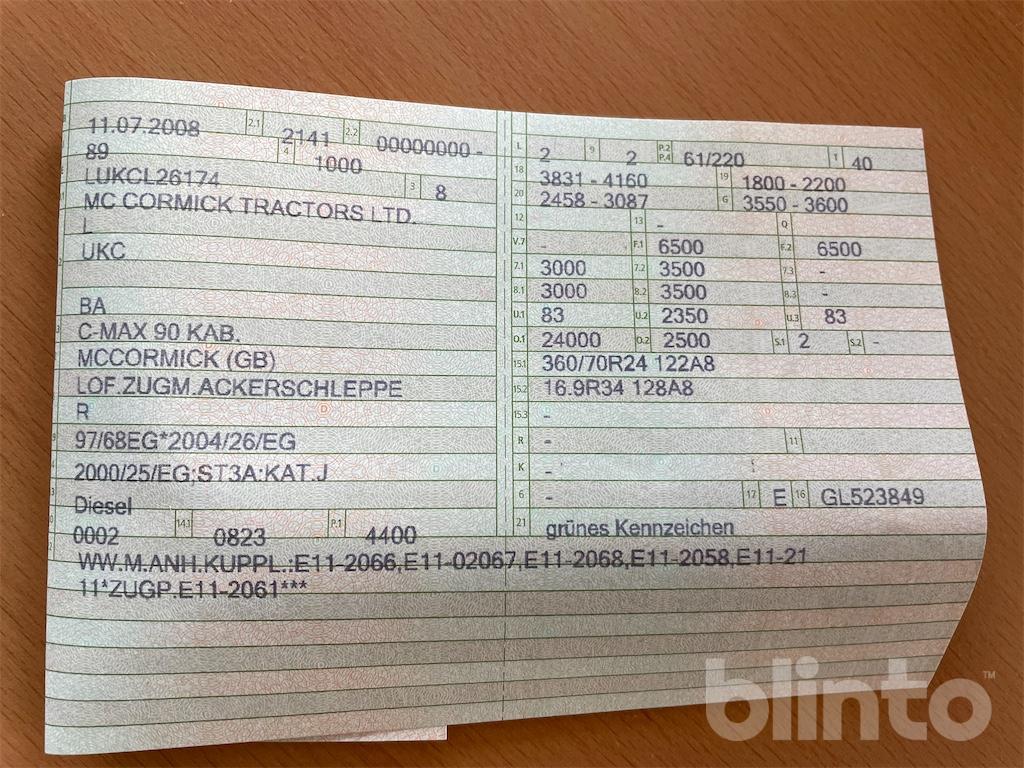 11.07.2008 2.1 2141 2.2 00000000 -
89 4 1000
LUKCL26174 3 8
MC CORMICK TRACTORS LTD.
L
UKC
BA
C-MAX 90 KAB.
MCCORMICK (GB)
LOF.ZUGM.ACKERSCHLEPPE
R
97/68EG*2004/26/EG
2000/25/EG;ST3A:KAT.J
Diesel
0002 14.1 0823 P.1 4400
L 2 9 2 P.2 P.4 61/220 T 40
18 3831 - 4160 19 1800 - 2200
20 2458 - 3087 G 3550 - 3600
12 13 - Q
V.7 - F.1 6500 F.2 6500
7.1 3000 7.2 3500 7.3 -
8.1 3000 8.2 3500 8.3 -
U.1 83 U.2 2350 U.3 83
O.1 24000 O.2 2500 S.1 2 S.2 -
15.1 360/70R24 122A8
15.2 16.9R34 128A8
15.3 -
R - 11
K -
6 - 17 E 16 GL523849
21 grünes Kennzeichen
WW.M.ANH.KUPPL.:E11-2066,E11-02067,E11-2068,E11-2058,E11-21
11*ZUGP.E11-2061***
blinto™